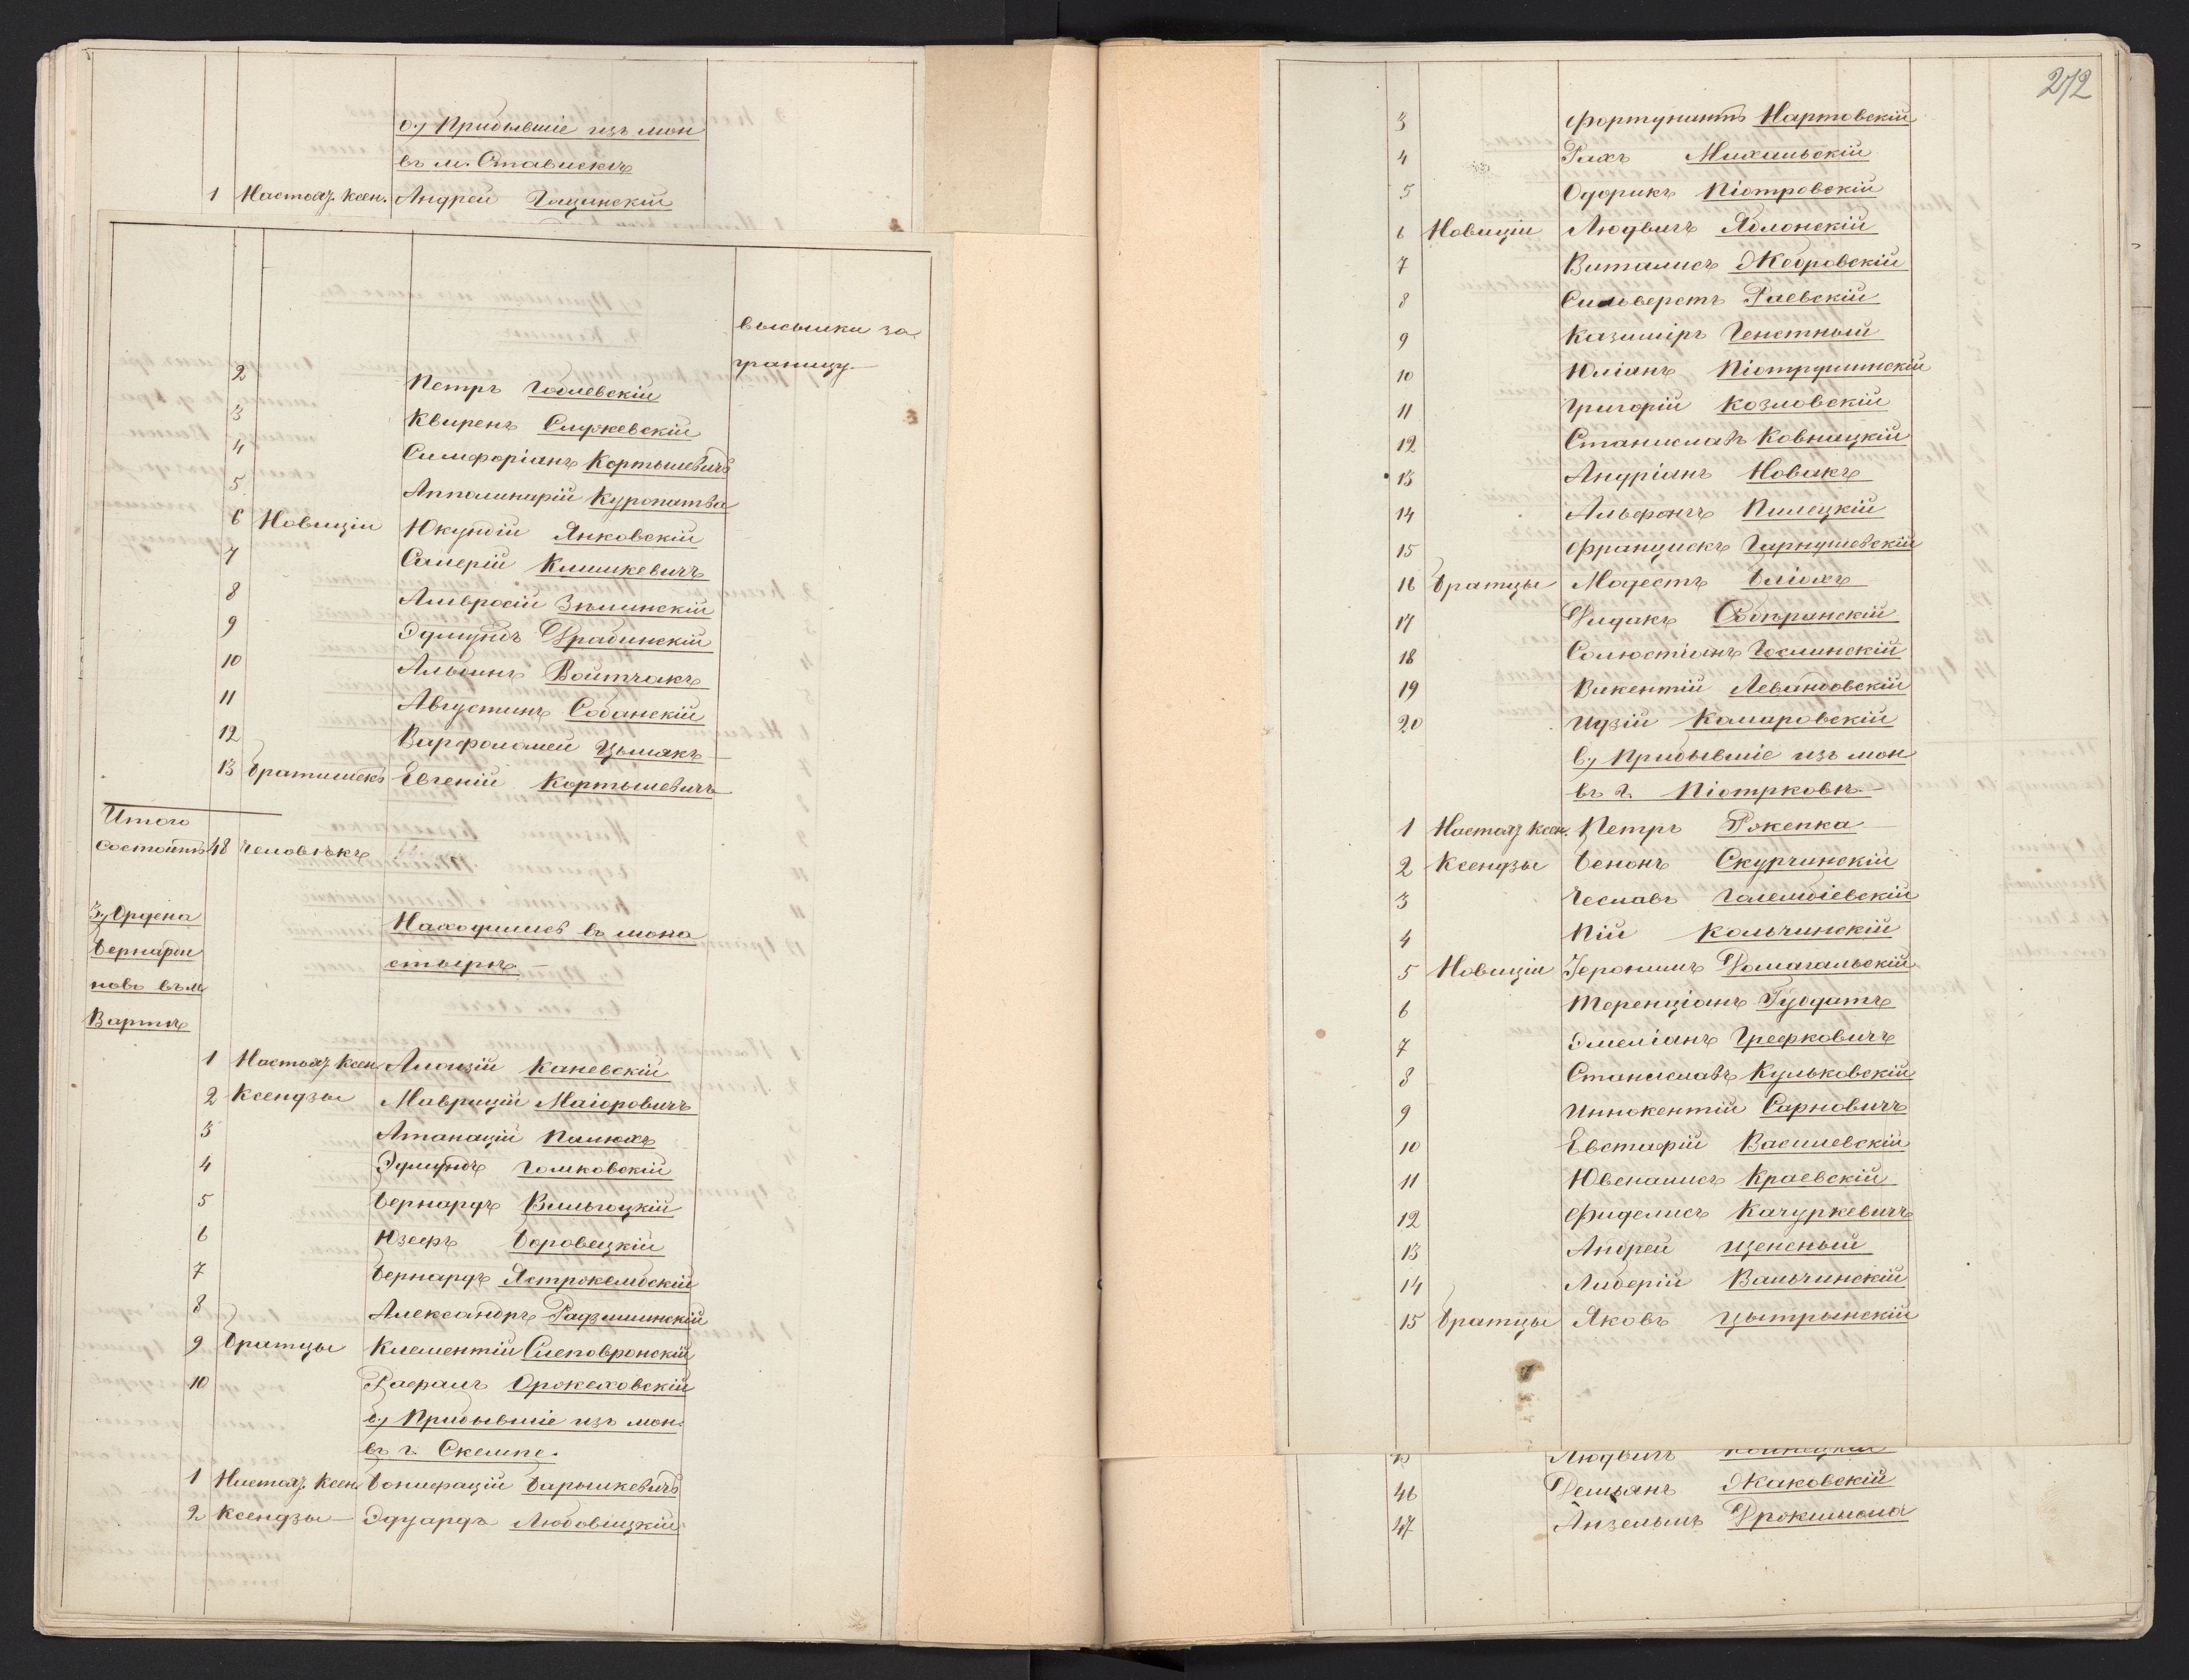 о, Прибывшіе изъ мон
въ м. Ставискъ
1 Настоят. Ксен. Андрей Гацинскій
высылки за
границу.
2 Петръ Гоолевскій
3 Квиренъ Служевскій
4 Симфоріанъ Кортышевичъ
5 Апполинарій Куропатва
6 Новиціи Юкундій Янковскій
7 Салерій Климкевичъ
8 Амвросій Зѣлинскій
9 Эдмундъ Драбинскій
10 Альбинъ Войтчакъ
11 Августинъ Собанскій
12 Варфоломей Цымакъ
13 Братишекъ Евгеній Кортышевичъ
Итого
состоитъ 48 человѣкъ
3, Ордена
Бернарди
новъ въ м
Вартѣ
Находились въ мона
стырѣ
1 Настоят Ксен Алоизій Каневскій
2 Ксендзы Маврицій Маіоровичъ
3 Атанацій Палюхъ
4 Эдмундъ Голковскій
5 Бернардъ Вильгоцкій
6 Юзефъ Боровецкій
7 Бернардъ Ястрожембскій
8 Александръ Радзиминскій
9 Братцы Клементій Слеповронскій
10 Рафаилъ Оржеховскій
б, Прибывшіе изъ мон.
въ г. Скемпе.
1 Настоят. Ксен Бонифацій Барышкевичъ
2 Ксендзы Эдуардъ Любовіцкій
272
3 Фортунатъ Нартовскій
4 Рохъ Михальскій
5 Одорикъ Піотровскій
6 Новиціи Людвигъ Яблонскій
7 Виталисъ Жебровскій
8 Сильверстъ Раевскій
9 Казиміръ Генстный
10 Юліанъ Піотрушинскій
11 Григорій Козловскій
12 Станиславъ Ковницкій
13 Андріанъ Новакъ
14 Альфонсъ Пилецкій
15 Францискъ Гарнушевскій
16 Братцы Модестъ Бліохъ
17 Дидакъ Собѣранскій
18 Салюстіанъ Гослинскій
19 Викентій Левандовскій
20 Идзій Комаровскій
в, Прибывшіе изъ мон
въ г. Піотрковѣ.
1 Настоят Ксен. Петръ Ржепка
2 Ксендзы Бенонъ Скурчинскій
3 Чеславъ Големbіевскій
4 Пій Кольчинскій
5 Новиціи Іеронимъ Домагальскій
6 Теренціанъ Губдатъ
7 Эмеліанъ Грефковичъ
8 Станиславъ Кульковскій
9 Иннокентій Сарновичъ
10 Евстафій Василевскій
11 Ювеналисъ Краевскій
12 Фиделисъ Качуркевичъ
13 Андрей Щенсный
14 Либерій Вальчинскій
15 Братцы Яковъ Цытрынскій
Людвигъ
46 Демьянъ Жаковскій
47 Анзельмъ Дрожимала